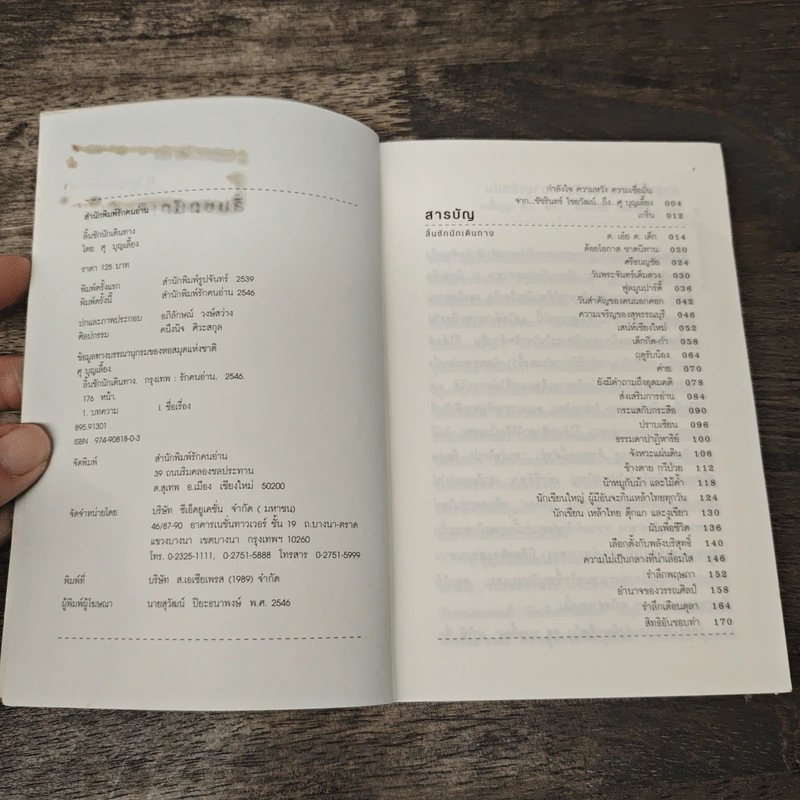 สำนักพิมพ์รักคนอ่าน
ลิ้นชักนักเดินทาง
โดย ศุ บุญเลี้ยง
ราคา 125 บาท
พิมพ์ครั้งแรก สำนักพิมพ์รูปจันทร์ 2539
พิมพ์ครั้งนี้ สำนักพิมพ์รักคนอ่าน 2546
ปกและภาพประกอบ อภิลักษณ์ วงษ์สว่าง
ศิลปกรรม คนึงนิจ ศิวะสกุล
ข้อมูลทางบรรณานุกรมของหอสมุดแห่งชาติ
ศุ บุญเลี้ยง.
ลิ้นชักนักเดินทาง. กรุงเทพ : รักคนอ่าน, 2546.
176 หน้า.
1. บทความ I. ชื่อเรื่อง
895.91301
ISBN 974-90818-0-3
จัดพิมพ์ สำนักพิมพ์รักคนอ่าน
39 ถนนริมคลองชลประทาน
ต.สุเทพ อ.เมือง เชียงใหม่ 50200
จัดจำหน่ายโดย บริษัท ซีเอ็ดยูเคชั่น จำกัด ( มหาชน)
46/87-90 อาคารเนชั่นทาวเวอร์ ชั้น 19 ถ.บางนา-ตราด
แขวงบางนา เขตบางนา กรุงเทพฯ 10260
โทร. 0-2325-1111, 0-2751-5888 โทรสาร 0-2751-5999
พิมพ์ที่ บริษัท ส.เอเชียเพรส (1989) จำกัด
ผู้พิมพ์ผู้โฆษณา นายสุวัฒน์ ปิยะอนาพงษ์ พ.ศ. 2546
กำลังใจ ความหวัง ความเชื่อมั่น
จาก...ชัชรินทร์ ไชยวัฒน์...ถึง ศุ บุญเลี้ยง 004
สารบัญ เกริ่น 012
ลิ้นชักนักเดินทาง ด. เอ๋ย ด. เด็ก 014
ด้อยโอกาส ขาดนิทาน 020
ศรีธนญชัย 024
วันพระจันทร์เต็มดวง 030
ฟูลมูนปาร์ตี้ 036
วันสำคัญของคนนอกคอก 042
ความเจริญของสุพรรณบุรี 046
เสน่ห์เชียงใหม่ 052
เด็กกึ๊ดก๋ำ 058
ฤดูรับน้อง 064
ค่าย 070
ยังมีคำถามถึงอุดมคติ 078
ส่งเสริมการอ่าน 084
กระแสกับกระสือ 090
ปราบเซียน 096
ธรรมดาปาฏิหาริย์ 100
จังหวะแผ่นดิน 106
ช้างตาย กวีป่วย 112
น้าหมูกับม้า และไม้ค้ำ 118
นักเขียนใหญ่ ผู้มีอันจะกินเหล้าไทยทุกวัน 124
นักเขียน เหล้าไทย ตุ๊กแก และงูเขียว 130
ผับเพื่อชีวิต 136
เลือกตั้งกับพลังบริสุทธิ์ 140
ความไม่เป็นกลางที่น่าเลื่อมใส 146
รำลึกพฤษภา 152
อำนาจของวรรณศิลป์ 158
รำลึกเดือนตุลา 164
สิทธิอันชอบทำ 170